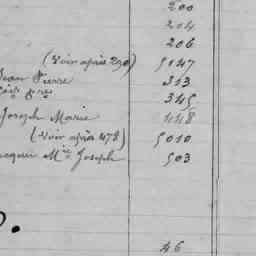 200
204
206
(Voir après 290) 5147
Jean Pierre 313
345
Joseph Marie 448
(Voir après 478) 5010
Jacques Mie Joseph 503
46